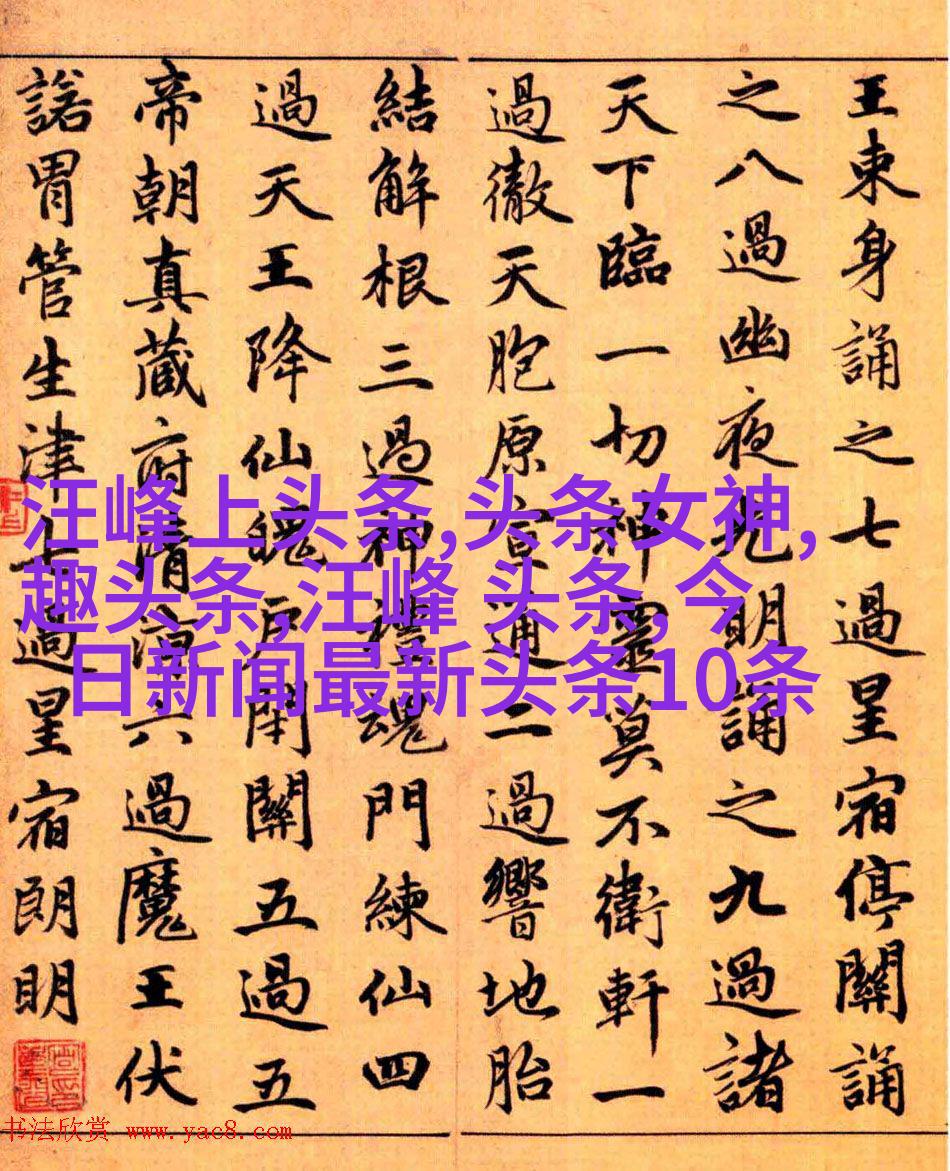 王東身誦之七過星宿停關誦
之八過幽夜明誦之九過諸
天下臨一切神靈莫不衛軒一
過徹天胞原宣通二過響地胎
結解根三過神禮魂門練仙四
過天王降仙魄戶閉關五過五
帝朝真藏府清涼六過魔王伏
諾胃管生津七過星宿朗明
汪峰上头条,头条女神,
趣头条,汪峰 头条, 今
日新闻最新头条10条
书法欣赏 www.yac8.com